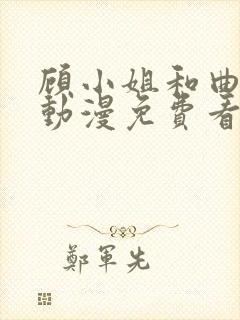 顾小姐和曲
動漫免費看
鄭軍先